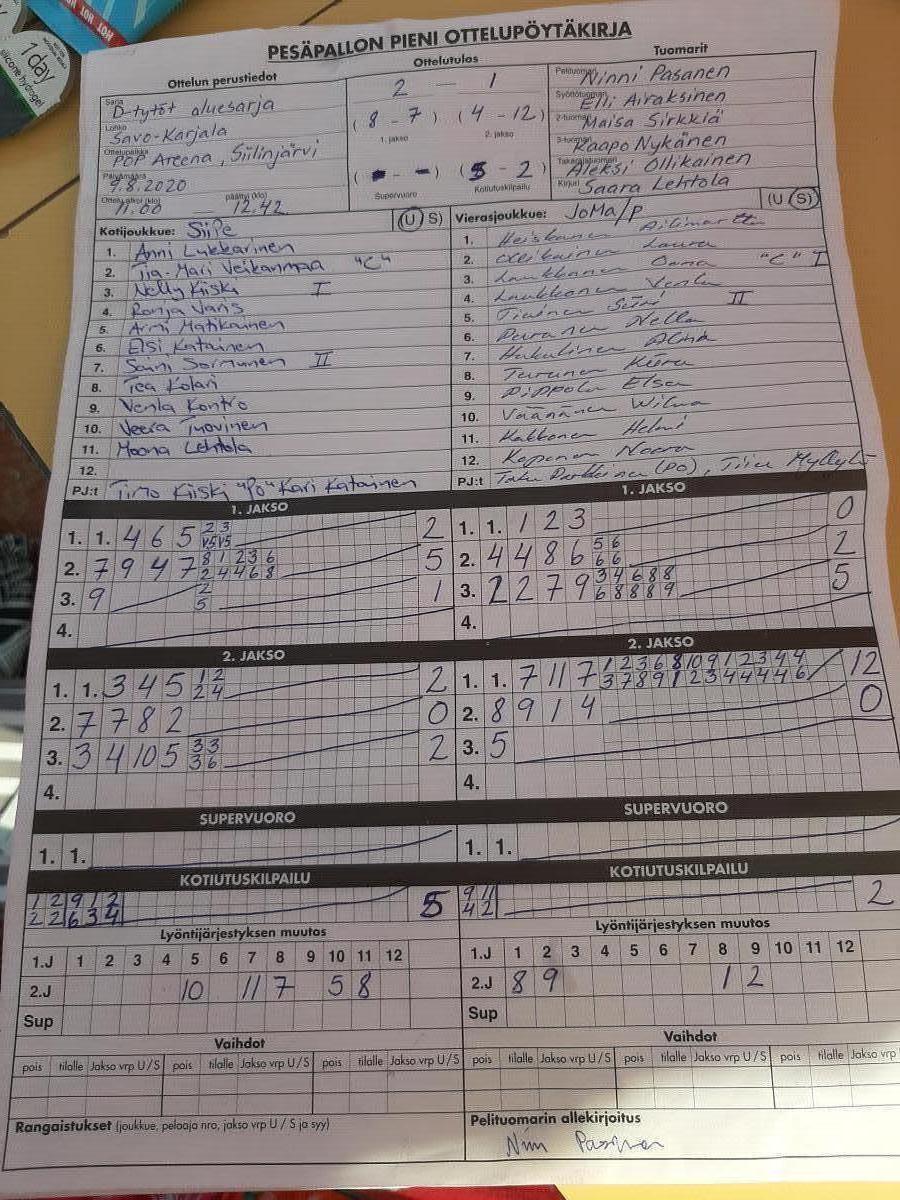 HOT HOT
1 day
silicone hydrogel
PESÄPALLON PIENI OTTELUPÖYTÄKIRJA
Ottelun perustiedot
Sarja D-tytöt aluesarja
Lohko Savo-Karjala
Ottelupaikka POP Areena, Siilinjärvi
Päivämäärä 9.8.2020
Ottelu alkoi (klo) 11.00 päättyi (klo) 12.42
Ottelutulos
2 - 1
(8 - 7) (4 - 12)
1. jakso 2. jakso
( - ) (5 - 2)
Supervuoro Kotiutuskilpailu
Tuomarit
Pelituomari Ninni Pasanen
Syöttötuomari Elli Airaksinen
2-tuomari Maisa Sirkkiä
3-tuomari Kaapo Nykänen
Takarajatuomari Aleksi Ollikainen
Kirjuri Saara Lehtola
Kotijoukkue: SiiPe (U S)
1. Anni Lukkarinen
2. Tia-Mari Veikanmaa "C"
3. Nelly Kiiski I
4. Ronja Varis
5. Armi Matikainen
6. Elsi Katainen
7. Saini Sormunen II
8. Tea Kolari
9. Venla Kontro
10. Veera Tuovinen
11. Moona Lehtola
12.
PJ:t Timo Kiiski "PO" Kari Katainen
Vierasjoukkue: JoMa/P (U S)
1. Heiskanen
2. Laura
3. Laukkanen Oona "C" I
4. Laukkanen Venla
5. Tiainen II
6. Nella
7. Hakulinen Alma
8. Turunen
9. Elsa
10. Väänänen Wilma
11. Kakkonen Helmi
12. Koponen Noora
PJ:t (PO),
1. JAKSO
1. 1. 4 6 5 2 3 2
V5 V5
2. 7 9 4 7 8 1 2 3 6 5
2 4 4 6 8
3. 9 2 1
5
4.
2. JAKSO
1. 1. 3 4 5 1 2 2
2 4
2. 7 7 8 2 0
3. 3 4 10 5 3 3 2
3 6
4.
SUPERVUORO
1. 1.
KOTIUTUSKILPAILU
1 2 9 1 2 5
2 2 6 3 4
1. JAKSO
1. 1. 1 2 3 0
2. 4 4 8 6 5 6 2
6 6
3. 2 2 7 9 3 4 6 8 8 5
6 8 8 8 9
4.
2. JAKSO
1. 1. 7 11 7 1 2 3 6 8 10 9 1 2 3 4 4 12
3 7 8 9 1 2 3 4 4 4 4 6
2. 8 9 1 4 0
3. 5
4.
SUPERVUORO
1. 1.
KOTIUTUSKILPAILU
9 11 2
4 2
Lyöntijärjestyksen muutos
1.J 1 2 3 4 5 6 7 8 9 10 11 12
2.J 10 11 7 5 8
Sup
Vaihdot
pois tilalle Jakso vrp U/S pois tilalle Jakso vrp U/S pois tilalle Jakso vrp U/S
Rangaistukset (joukkue, pelaaja nro, jakso vrp U / S ja syy)
Lyöntijärjestyksen muutos
1.J 1 2 3 4 5 6 7 8 9 10 11 12
2.J 8 9 1 2
Sup
Vaihdot
pois tilalle Jakso vrp U/S pois tilalle Jakso vrp U/S pois tilalle Jakso vrp
Pelituomarin allekirjoitus